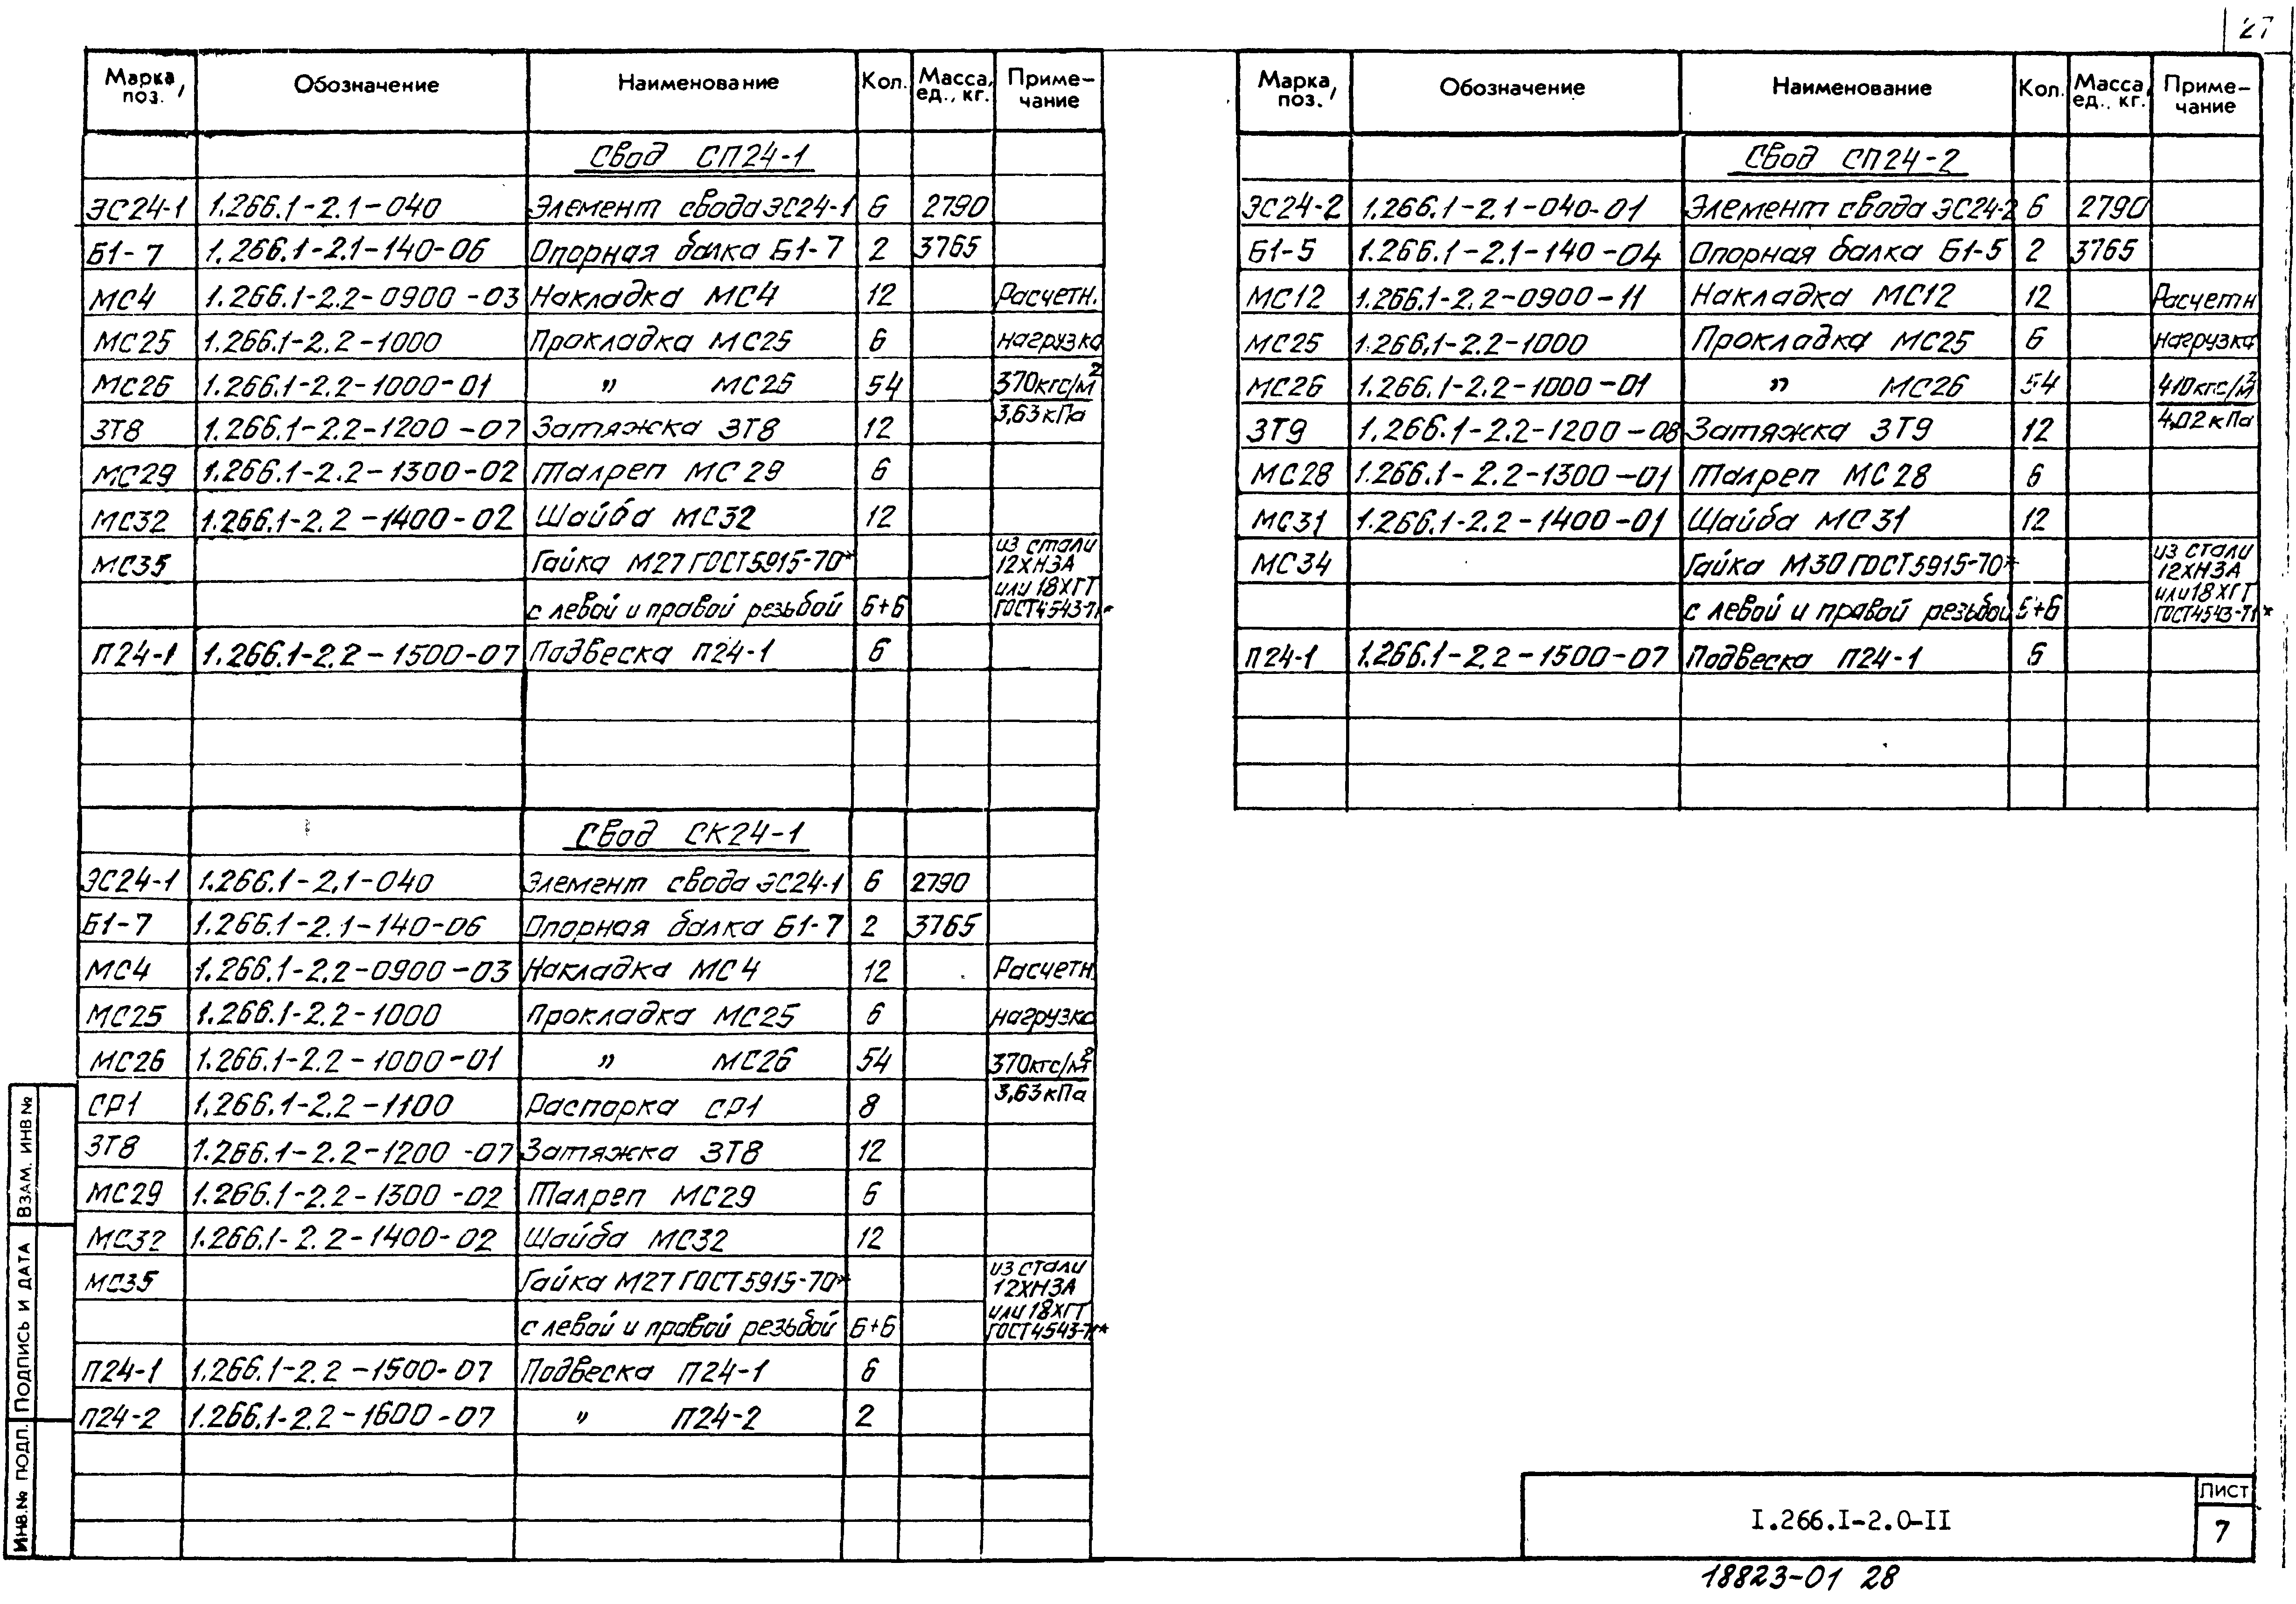 27
Марка, поз. Обозначение Наименование Кол. Масса, ед., кг. Приме-чание
Свод СП24-1
ЭС24-1 1.266.1-2.1-040 Элемент свода ЭС24-1 6 2790
Б1-7 1.266.1-2.1-140-06 Опорная балка Б1-7 2 3765
МС4 1.266.1-2.2-0900-03 Накладка МС4 12 Расчетн.
МС25 1.266.1-2.2-1000 Прокладка МС25 6 нагрузка
МС26 1.266.1-2.2-1000-01 " МС26 54 370кгс/м²
3,63кПа
ЗТ8 1.266.1-2.2-1200-07 Затяжка ЗТ8 12
МС29 1.266.1-2.2-1300-02 Талреп МС29 6
МС32 1.266.1-2.2-1400-02 Шайба МС32 12
МС35 Гайка М27 ГОСТ5915-70* из стали 12ХН3А
с левой и правой резьбой 6+6 или 18ХГТ ГОСТ4543-71*
П24-1 1.266.1-2.2-1500-07 Подвеска П24-1 6
Свод СК24-1
ЭС24-1 1.266.1-2.1-040 Элемент свода ЭС24-1 6 2790
Б1-7 1.266.1-2.1-140-06 Опорная балка Б1-7 2 3765
МС4 1.266.1-2.2-0900-03 Накладка МС4 12 Расчетн.
МС25 1.266.1-2.2-1000 Прокладка МС25 6 нагрузка
МС26 1.266.1-2.2-1000-01 " МС26 54 370кгс/м²
СР1 1.266.1-2.2-1100 Распорка СР1 8 3,63кПа
ЗТ8 1.266.1-2.2-1200-07 Затяжка ЗТ8 12
МС29 1.266.1-2.2-1300-02 Талреп МС29 6
МС32 1.266.1-2.2-1400-02 Шайба МС32 12
МС35 Гайка М27 ГОСТ5915-70* из стали 12ХН3А
с левой и правой резьбой 6+6 или 18ХГТ ГОСТ4543-71*
П24-1 1.266.1-2.2-1500-07 Подвеска П24-1 6
П24-2 1.266.1-2.2-1600-07 " П24-2 2
Марка, поз. Обозначение Наименование Кол. Масса, ед., кг. Приме-чание
Свод СП24-2
ЭС24-2 1.266.1-2.1-040-01 Элемент свода ЭС24-2 6 2790
Б1-5 1.266.1-2.1-140-04 Опорная балка Б1-5 2 3765
МС12 1.266.1-2.2-0900-11 Накладка МС12 12 Расчетн
МС25 1.266.1-2.2-1000 Прокладка МС25 6 нагрузка
МС26 1.266.1-2.2-1000-01 " МС26 54 410кгс/м²
ЗТ9 1.266.1-2.2-1200-08 Затяжка ЗТ9 12 4,02кПа
МС28 1.266.1-2.2-1300-01 Талреп МС28 6
МС31 1.266.1-2.2-1400-01 Шайба МС31 12
МС34 Гайка М30 ГОСТ5915-70* из стали 12ХН3А
с левой и правой резьбой 6+6 или 18ХГТ ГОСТ4543-71*
П24-1 1.266.1-2.2-1500-07 Подвеска П24-1 6
ИНВ.№ ПОДЛ. ПОДПИСЬ И ДАТА ВЗАМ. ИНВ №
I.266.I-2.0-II
ЛИСТ
7
18823-01 28